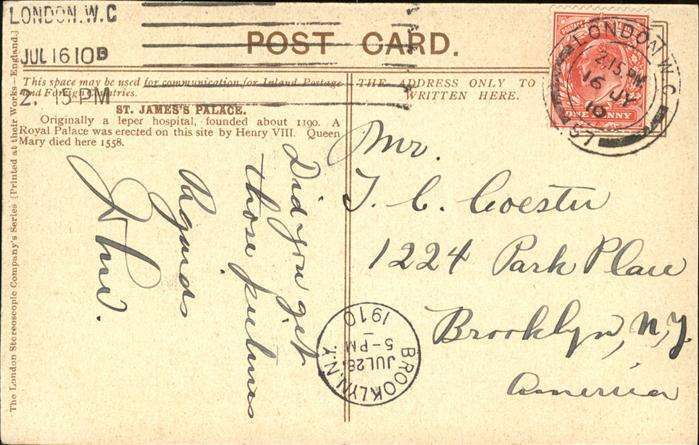 LONDON.W.C
JUL 16 10
2. 15 PM
POST CARD.
This space may be used for communication for Inland Postage
and Foreign Countries.
THE ADDRESS ONLY TO
WRITTEN HERE.
ST. JAMES'S PALACE.
Originally a leper hospital, founded about 1190. A
Royal Palace was erected on this site by Henry VIII. Queen
Mary died here 1558.
LONDON.W.C
2.15 PM
16 JY
10
57
ONE PENNY
Did you get
those pictures
Regards
Mr.
T. C. Coester
1224 Park Place
Brooklyn, N.Y.
America
BROOKLYN.N.Y.
JUL 26
5-PM
1910
The London Stereoscopic Company's Series [Printed at their Works England.]